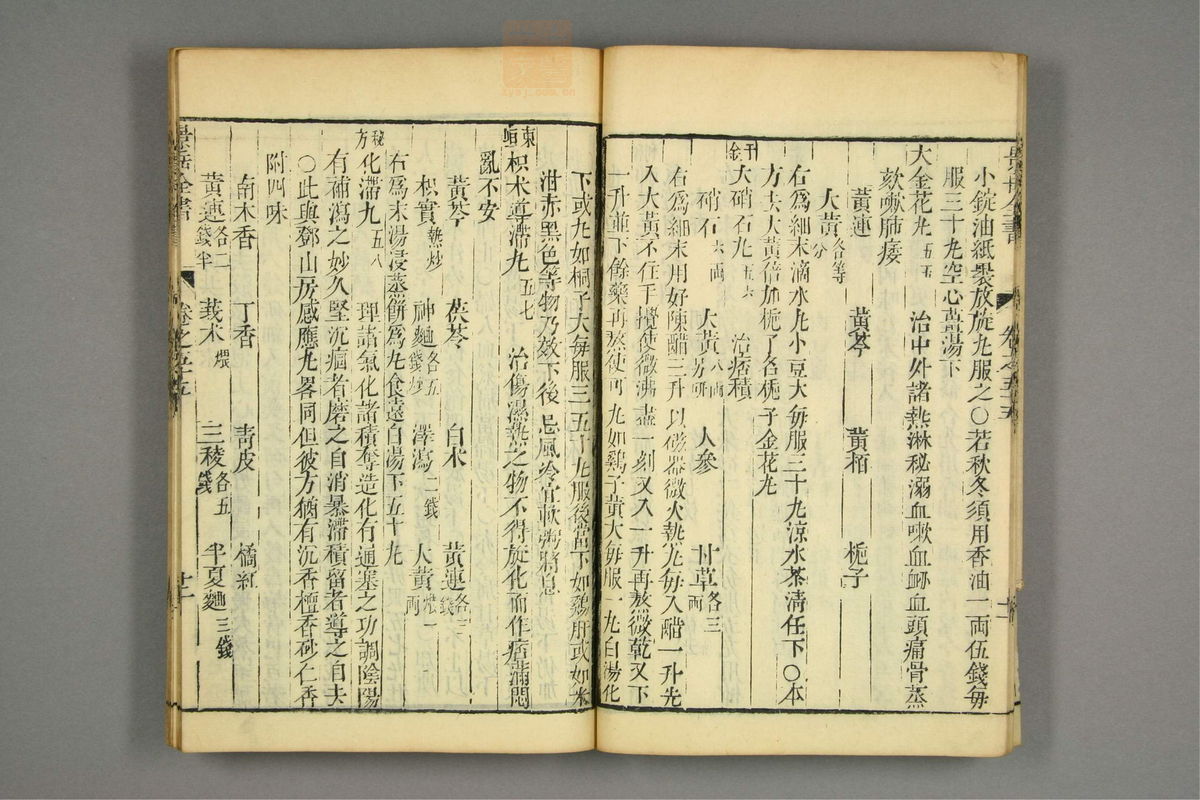 小錠油紙裹放旋丸服之○若秋冬須用香油一兩伍錢每
服三十丸空心薑湯下
大金花丸五五 治中外諸熱淋秘溺血嗽血衂血頭痛骨蒸
欬嗽肺痿
黃連 黃芩 黃栢 梔子
大黃各等分
右爲細末滴水丸小豆大每服三十丸凉水茶清任下○本
方去大黃倍加梔子名梔子金花丸
千金
大硝石丸五六 治痞積
硝石六兩 大黃八兩另研 人參 甘草各三兩
右爲細末用好陳醋三升以磁器微火熬先每入醋一升先
入大黃不住手攪使微沸盡一刻又入一升再熬微乾又下
一升並下餘藥再熬使可丸如鷄子黃大每服一丸白湯化
下或丸如桐子大每服三五十丸服後當下如鷄肝或如米
泔赤黑色等物乃效下後忌風冷宜軟粥將息
東垣
枳术導滯丸五七 治傷濕熱之物不得旋化而作痞滿悶
亂不安
黃芩 茯苓 白术 黃連各三錢
枳實麩炒 神麯各五錢炒 澤瀉二錢 大黃煨一兩
右爲末湯浸蒸餅爲丸食遠白湯下五十丸
秘方
化滯丸五八 理諸氣化諸積奪造化有通塞之功調陰陽
有補瀉之妙久堅沉痼者磨之自消暴滯積留者導之自去
○此與鄧山房感應丸畧同但彼方猶有沉香檀香砂仁香
附四味
南木香 丁香 青皮 橘紅
黃連各二錢半 莪术煨 三稜各五錢 半夏麯三錢
景岳全書
卷之五十五
十二